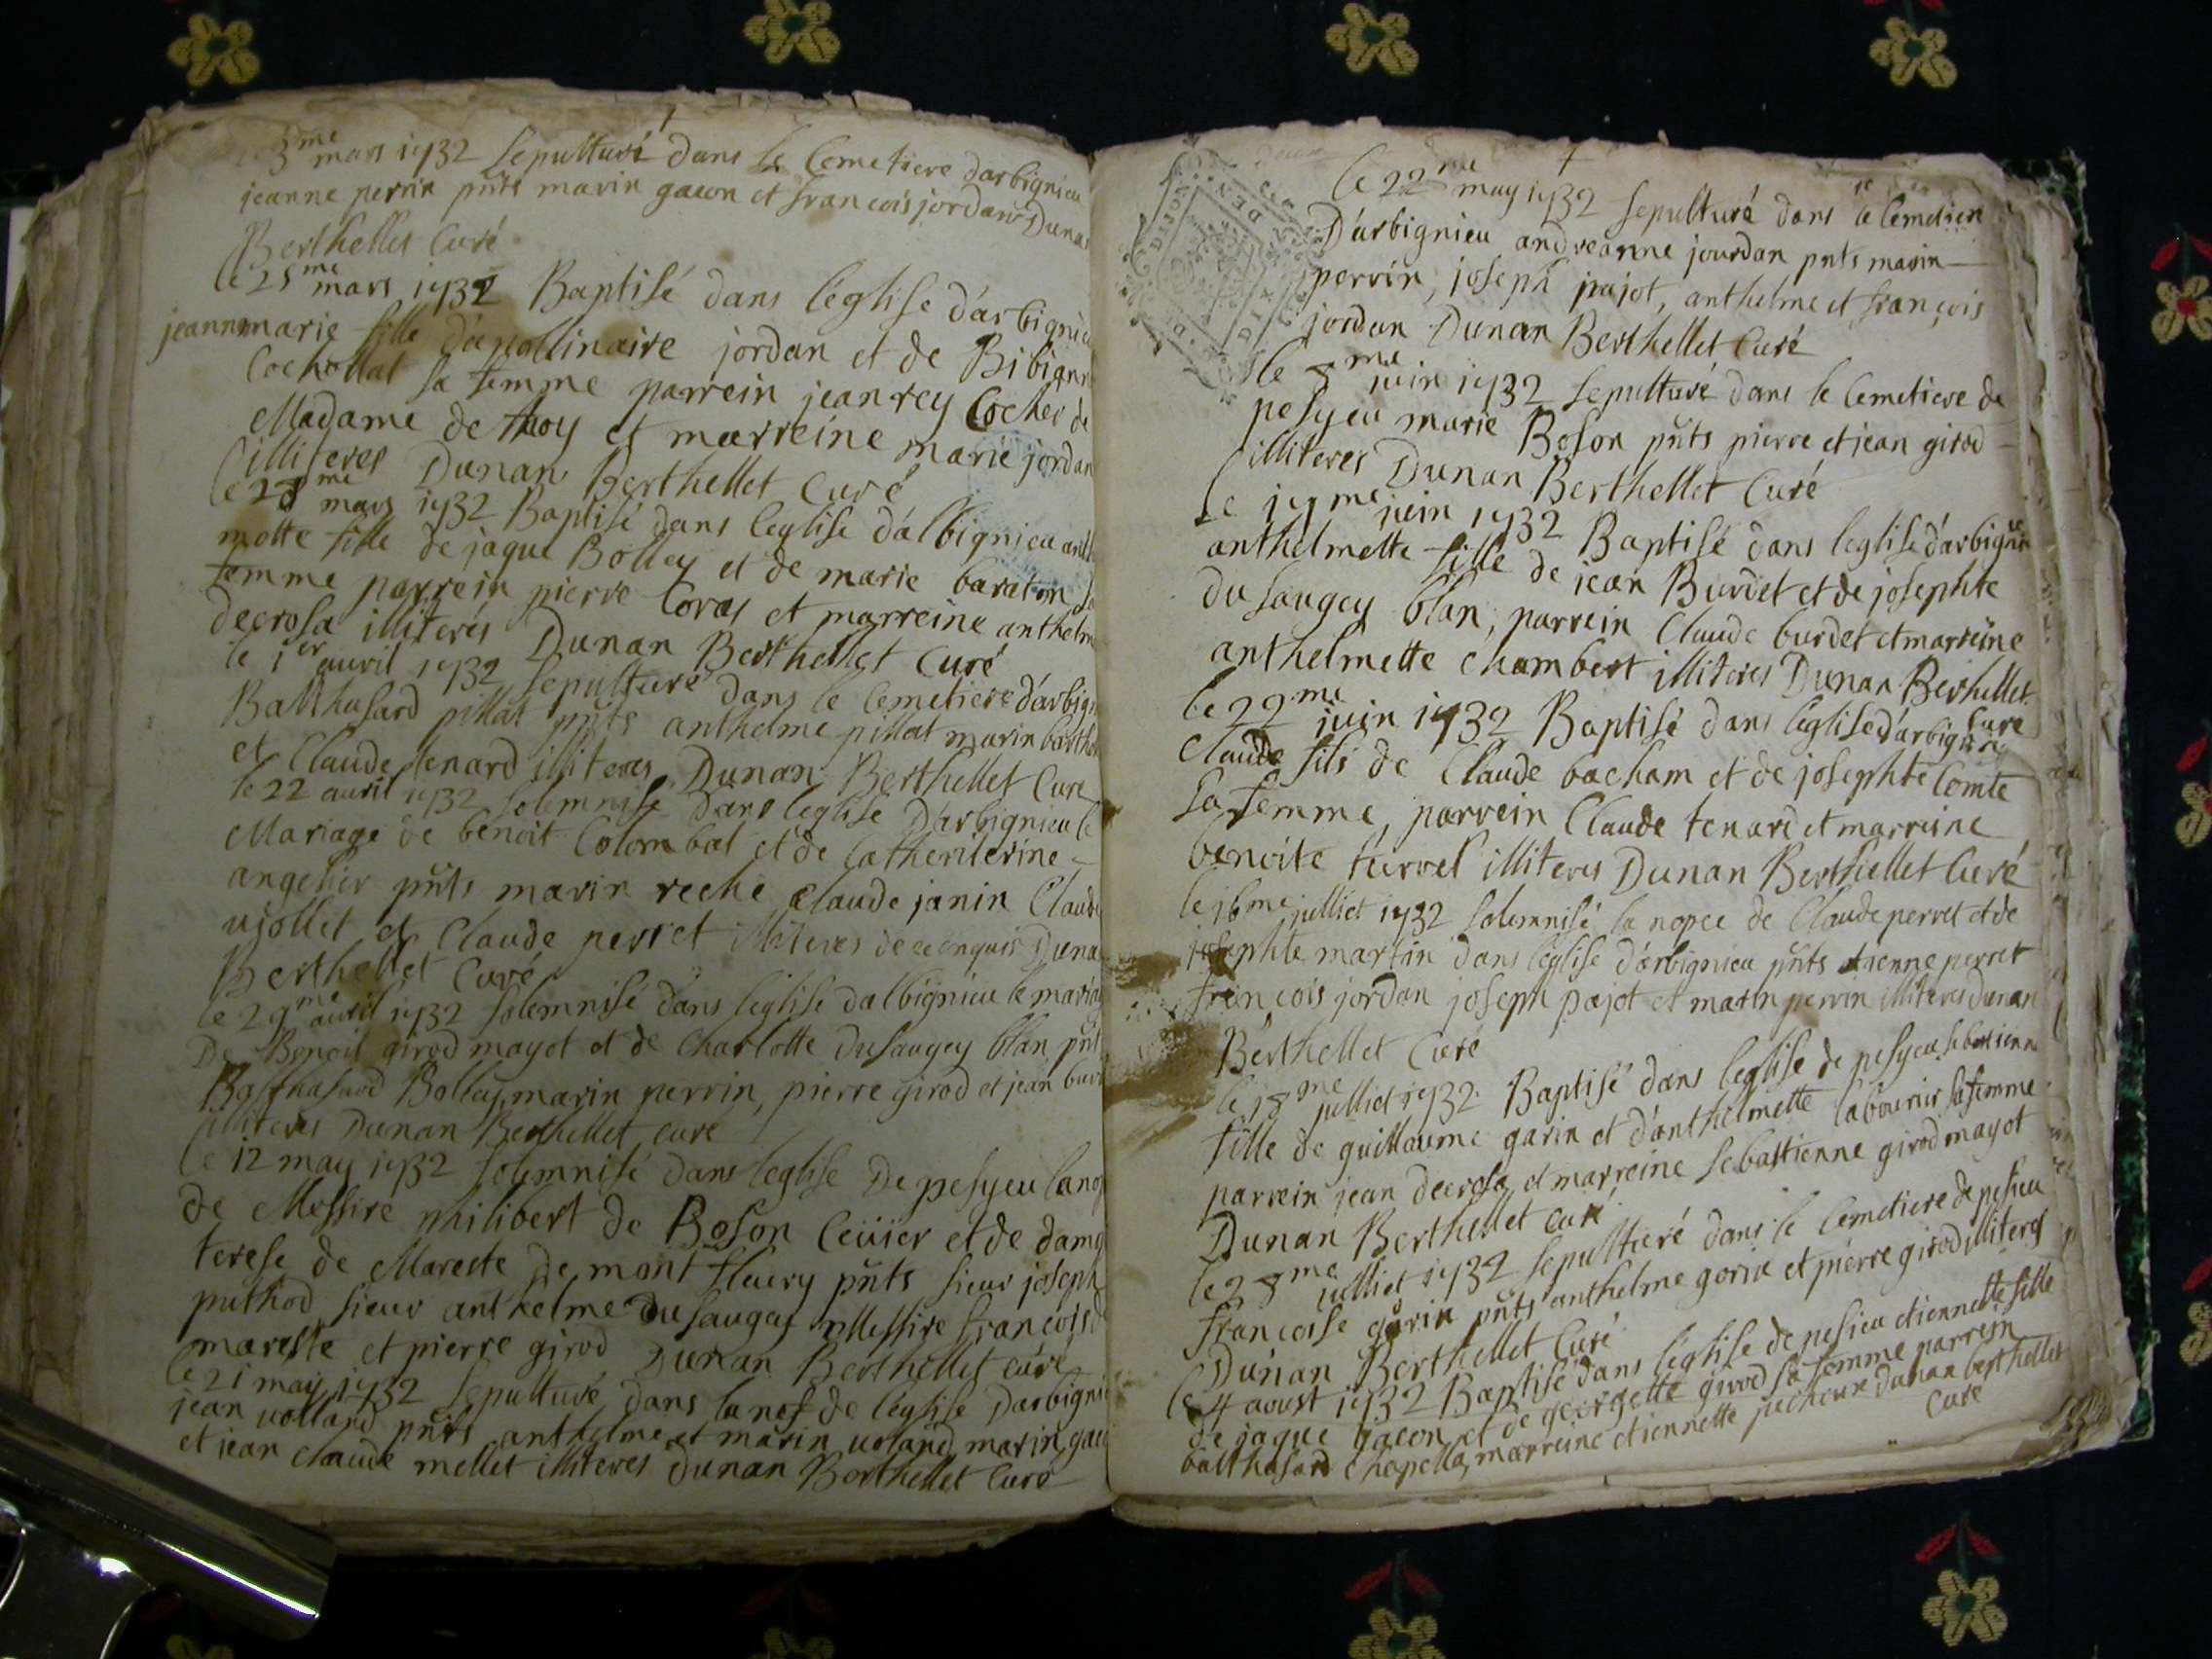 3me mars 1732 sepulturé dans le Cemetiere darbignieu
jeanne perrin pnts marin gacon et francois jordan Dunan
Berthellet Curé
le 25me mars 1732 Baptisé dans l'eglise d'arbignieu
jeannemarie fille d'apollinaire jordan et de Bibiane
Cochollat sa femme parrein jean rey Cocher de
Madame de et marreine marie jordan
illiteres Dunan Berthellet Curé
le 28me mars 1732 Baptisé dans leglise d'albignieu anthel
motte fille de jaque Bolley et de marie baraton sa
femme parrein pierre Coras et marreine anthelm
decrosa illiterés Dunan Berthellet Curé
le 1er auril 1732 sepulturé dans le Cemetiere d'arbign
Balthasard pillat pnts anthelme pillat marin barthel
et Claude tenard illiteres Dunan Berthellet Curé
le 22 auril 1732 solemnisé dans leglise D'arbignieu le
Mariage de benoit Colombat et de Catheriterine
angelier pnts marin reche Claude janin Claude
ujollet et Claude perret illiteres de ce enquis Dunan
Berthellet Curé
le 29me auril 1732 solemnisé dans leglise dalbignieu le mariag
De Benoit girod mayot et de Charlotte Dusaugey blan pnt
Balthasard Bolley, marin perrin, pierre girod et jean bur
illiteres Dunan Berthellet curé
le 12 may 1732 solemnisé dans leglise De pesyeu la nop
de Messire philibert de Boson Ceüier et de dam
terese de Mareste de montfleury pnts sieur joseph
puthod sieur anthelme Dusaugey Messire francois
mareste et pierre girod Dunan Berthellet curé
le 21 may 1732 sepulturé dans la nef de l'église Darbigni
jean volland pnts anthelme et marin voland marin gac
et jean claude mellet illiteres dunan Berthellet Curé
le 22me may 1732 sepulturé dans le Cemetiere
D'arbignieu andreanne jourdan pnts marin
perrin, joseph pajot, anthelme et françois
jordan Dunan Berthellet Curé
le 8me juin 1732 sepulturé dans le Cemetiere de
pesyeu marie Boson pnts pierre et jean girod
illiteres Dunan Berthellet Curé
Le 19me juin 1732 Baptisé dans leglise d'arbignie
anthelmette fille de jean Burdet et de josephte
du saugey blan, parrein Claude burdet et marreine
anthelmette chambert illiteres Dunan Berthellet
Curé
le 22me juin 1732 Baptisé dans l'eglise d'arbignie
Claude fils de Claude bacham et de josephte Comte
sa femme, parrein Claude tenard et marreine
benoite turrel illiteres Dunan Berthellet Curé
le 16me julliet 1732 solemnisé la nopce de Claude perret et de
josephte martin dans l'eglise d'arbignieu pnts etienne perret
françois jordan joseph pajot et marin perrin illiteres dunan
Berthellet Curé
le 18me julliet 1732 Baptisé dans leglise de pesyeu sebastienne
fille de guillaume garin et d'anthelmette labourier sa femme
parrein jean decrosa et marreine sebastienne girod mayot
Dunan Berthellet curé
le 28me julliet 1732 sepulturé dans le Cemetiere de pesieu
francoise garin pnts anthelme gorin et pierre girod illiteres
Dunan Berthellet Curé
le 4 aoust 1732 Baptisé dans l'eglise de pesieu etiennette fille
de jaque gacon et de georgette girod sa femme parrein
balthasard chapella, marreine etiennette dunan berthellet
Curé